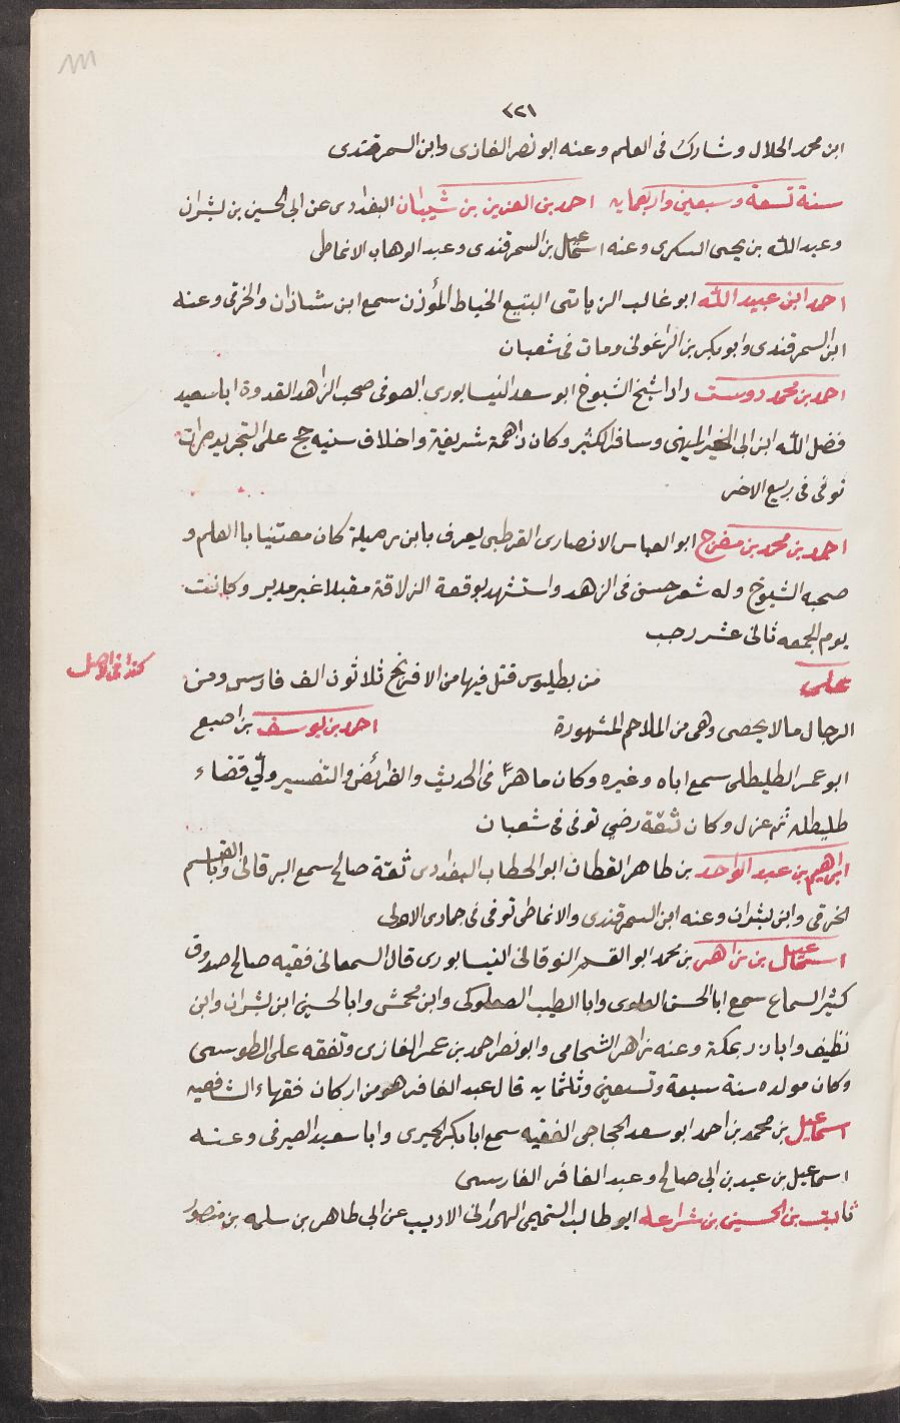 ٢٢١
ابن محمد الخلال وشارك فى العلم وعنه ابو نصر الغازى وابن السمرقندى
سنة تسعة وسبعين واربعمايه احمد بن العزيز بن شيبان البغدادى عن ابى الحسين بن بشران
وعبد الله بن يحيى السكرى وعنه اسماعيل بن السمرقندى وعبد الوهاب الانماطى
احمد ابن عبيد الله ابو غالب الزياتى البتيع الخياط المؤذن سمع ابن شاذان والخرقى وعنه
ابن السمرقندى وابو بكر بن الزاغونى ومات فى شعبان
احمد بن محمد دوست دادا شيخ الشيوخ ابو سعد النيسابورى الصوفى صحب الزاهد القدوة ابا سعيد
فضل الله ابن ابى الخير الميهنى وسافر الكثير وكان ذا همة شريفة واخلاق سنيه حج على التجريد مرات
توفى فى ربيع الاخر
احمد بن محمد بن مفرج ابو العباس الانصارى القرطبى يعرف بابن رميلة كان معتنيا باالعلم و
صحبه الشيوخ وله شعر حسن فى الزهد واستشهد بوقعة الزلاقة مقبلا غير مدبر وكانت
يوم الجمعه ثانى عشر رجب
على من بطليوس قتل فيها من الافرنج ثلاثون الف فارس ومن
كذا فى الاصل
الرجال مالا يحصى وهى من الملاحم المشهورة احمد بن يوسف بن اصبع
ابو عمر الطليطلى سمع اباه وغيره وكان ماهرًا فى الحديث والفرائض والتفسير ولّي قضاء
طليطله ثم عزل وكان ثقة رضي توفى فى شعبان
ابراهيم بن عبد الواحد بن طاهر القطان ابو الخطاب البغدادى ثقة صالح سمع البرقانى وابا القسم
الخرقى وابن بشران وعنه ابن السمرقندى والانماطى توفى فى جمادى الاولى
اسماعيل بن زاهر بن محمد ابو القسم النوقانى النيسابورى قال السمعانى فقيه صالح صدوق
كثير السماع سمع ابا الحسن العلوى وابا الطيب الصعلوكى وابن محمش وابا لحسين ابن بشران وابن
نظيف وابا ذر بمكة وعنه زاهر الشحامى وابو نصر احمد بن عمر الغازى وتفقه على الطوسى
وكان مولده سنة سبعة وتسعين وثلثمايه قال عبد الغافر هو من اركان فقهاء الشافعيه
اسماعيل بن محمد بن احمد ابو سعد الحجاجى الفقيه سمع ابا بكر الحيرى وابا سعيد الصيرفى وعنه
اسماعيل بن عبد بن ابى صالح وعبد الغافر الفارسى
ثابت بن الحسين بن شراعه ابو طالب التميمى الهمدانى الاديب عن ابى طاهر بن سلمه بن منصور